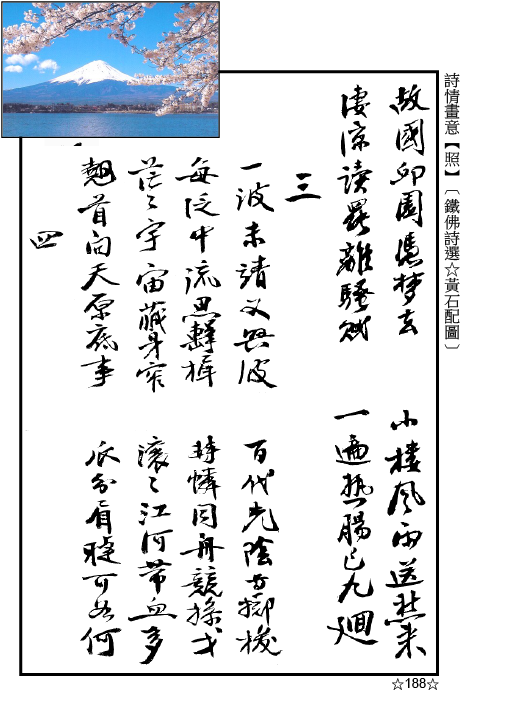 詩情畫意【照】〔鐵佛詩選☆黃石配圖〕
故國邱園憑夢去 小樓風雨送愁來
淒涼讀罷離騷賦 一遍熱腸已九迴
三
一波未靖又興波 百代光陰等擲梭
每泛中流思擊楫 憐同舟競操戈
茫々宇宙藏身窄 滾々江河帶血多
翹首向天原底事 瓜分眉睫可如何
四
☆188☆